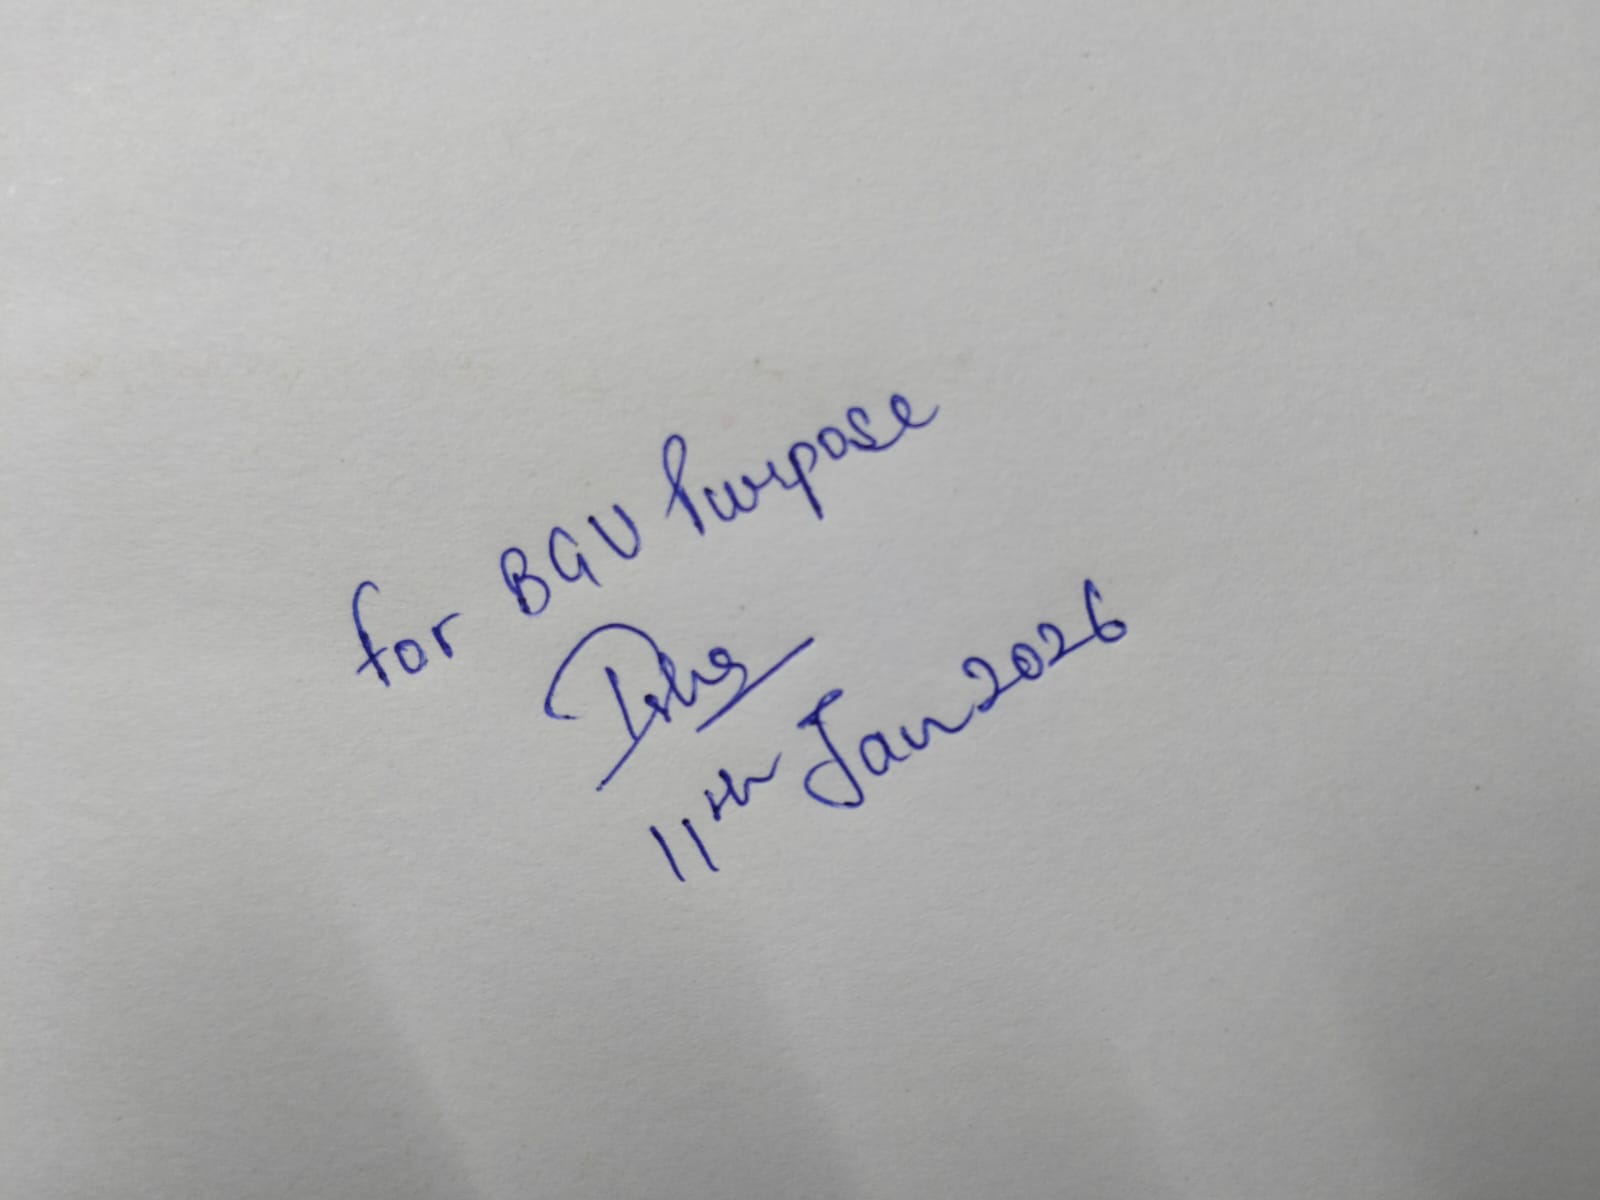 for BGV Purpose
11th Jan 2026